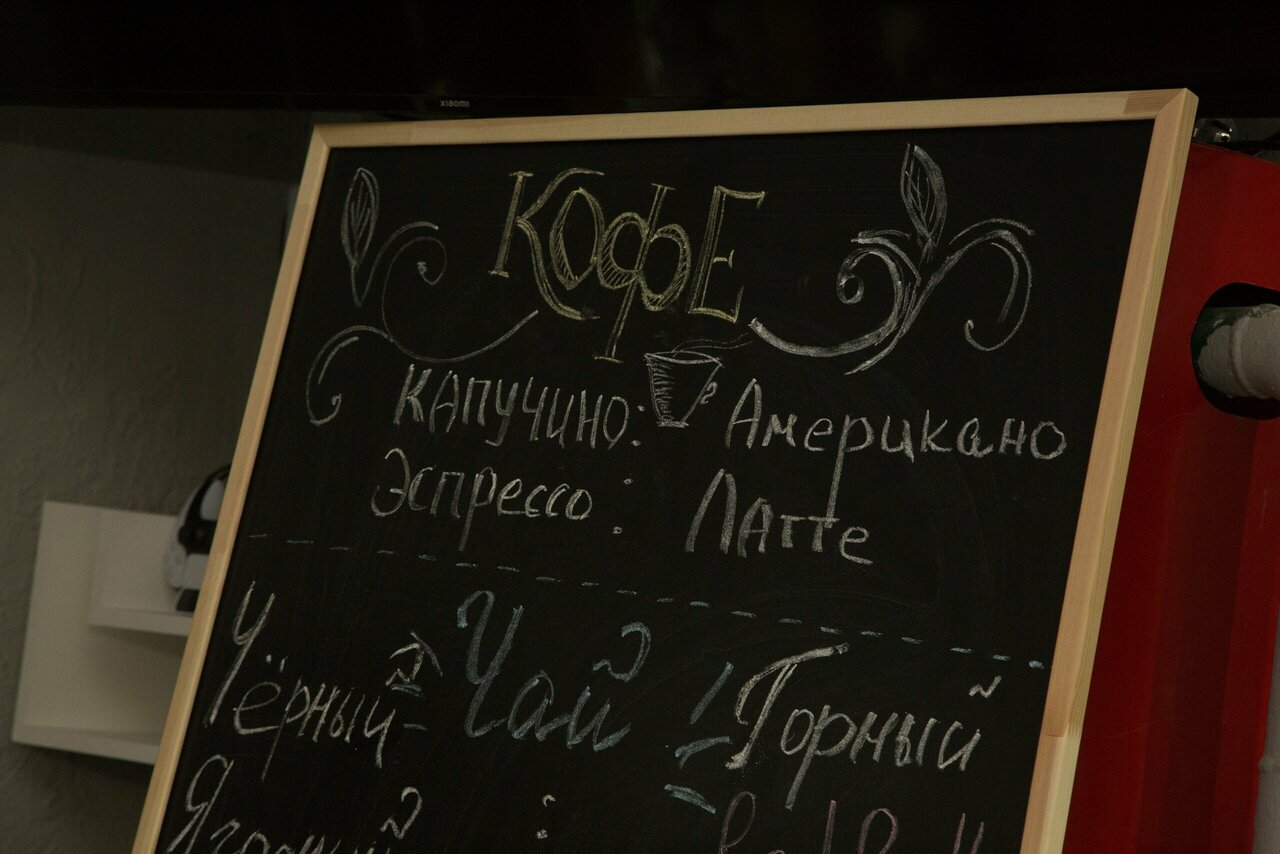 XIAOMI
КОФЕ
КАПУЧИНО: Американо
Эспрессо : Латте
Чай
Чёрный Горный
Ягодный :